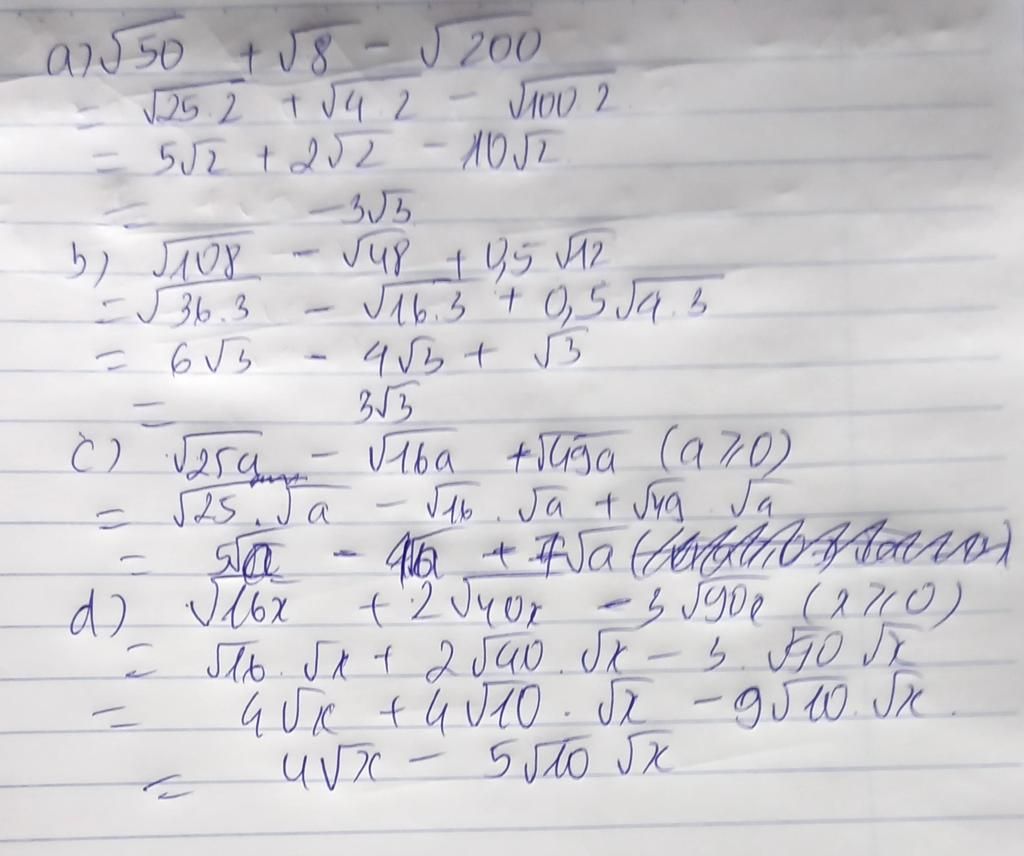 a) √50 + √8 - √200
= √25.2 + √4.2 - √100.2
= 5√2 + 2√2 - 10√2
= -3√3
b) √108 - √48 + 0,5 √12
= √36.3 - √16.3 + 0,5√4.3
= 6√3 - 4√3 + √3
= 3√3
c) √25a - √16a + √49a (a ≥ 0)
= √25 . √a - √16 . √a + √49 √a
= 5√a - 4√a + 7√a
d) √16x + 2√40x - 3√90x (x ≥ 0)
= √16 . √x + 2√40 . √x - 3 . √90 √x
= 4√x + 4√10 . √x - 9√10 . √x
= 4√x - 5√10 √x